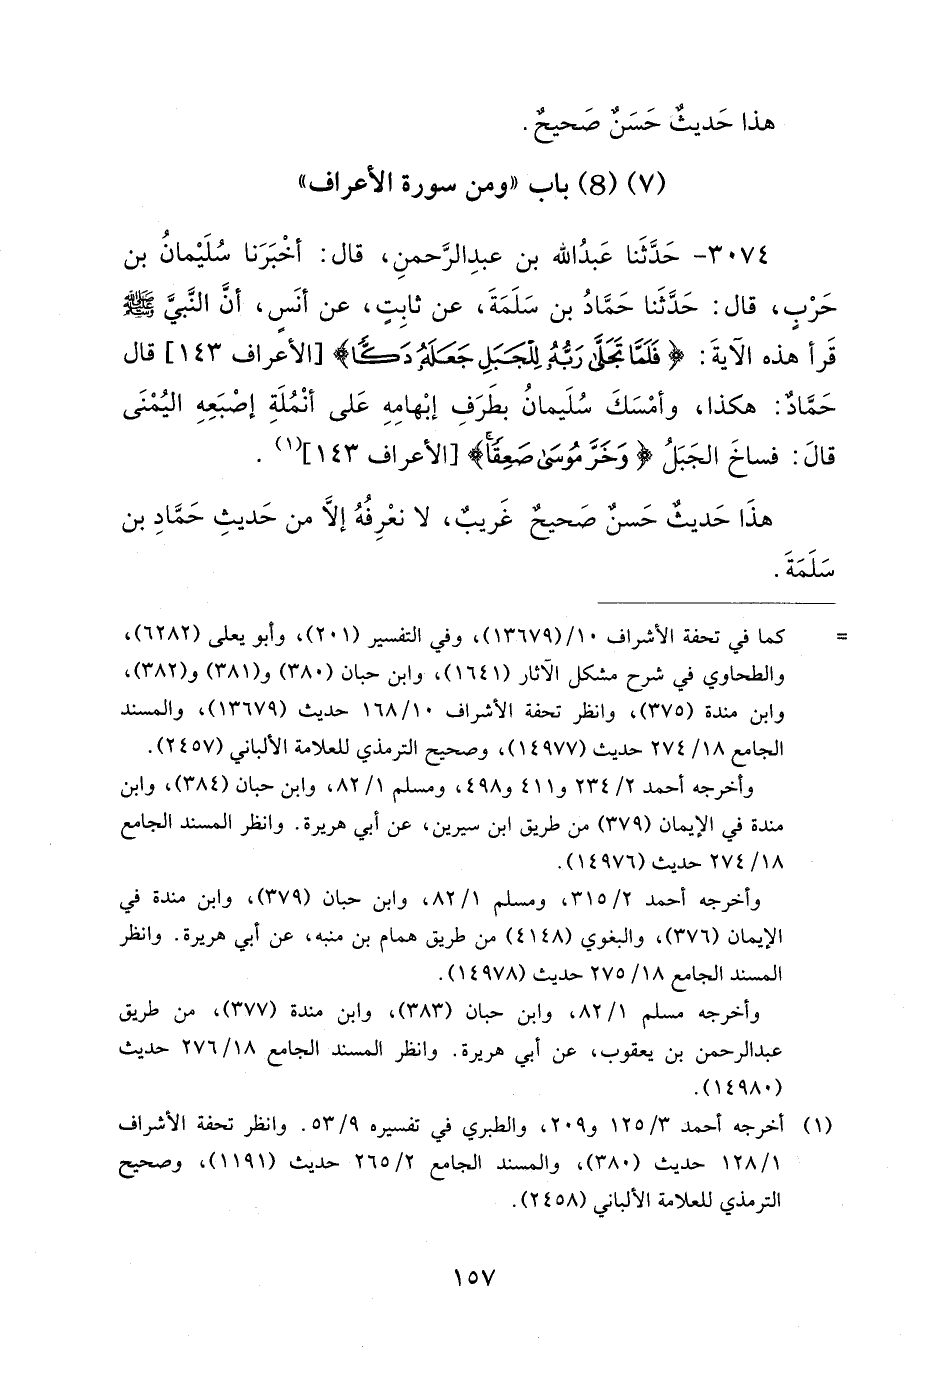 هذا حَديثٌ حَسَنٌ صَحيحٌ.
(٧) (8) باب «ومن سورة الأعراف»
٣٠٧٤- حَدَّثَنا عَبدُالله بن عبدِالرَّحمنِ، قال: أخْبَرَنا سُلَيْمانُ بن
حَرْبٍ، قال: حَدَّثَنا حَمَّادُ بن سَلَمَةَ، عن ثابِتٍ، عن أنَسٍ، أنَّ النَّبيَّ ﷺ
قَرأ هذه الآيةَ: ﴿فَلَمَّا تَجَلَّىٰ رَبُّهُۥ لِلْجَبَلِ جَعَلَهُۥ دَكًّا﴾ [الأعراف ١٤٣] قال
حَمَّادٌ: هكذا، وأمْسَكَ سُلَيمانُ بطَرَفِ إبْهامِهِ عَلى أنْمُلَةِ إصْبَعِهِ اليُمْنَى
قالَ: فساخَ الجَبَلُ ﴿وَخَرَّ مُوسَىٰ صَعِقًا﴾ [الأعراف ١٤٣](١).
هذَا حَديثٌ حَسنٌ صَحيحٌ غَريبٌ، لا نعْرِفُهُ إلاَّ من حَديثِ حَمَّادِ بن
سَلَمَةَ.
= كما في تحفة الأشراف ١٠/(١٣٦٧٩)، وفي التفسير (٢٠١)، وأبو يعلى (٦٢٨٢)،
والطحاوي في شرح مشكل الآثار (١٦٤١)، وابن حبان (٣٨٠) و(٣٨١) و(٣٨٢)،
وابن مندة (٣٧٥)، وانظر تحفة الأشراف ١٠/ ١٦٨ حديث (١٣٦٧٩)، والمسند
الجامع ١٨/ ٢٧٤ حديث (١٤٩٧٧)، وصحيح الترمذي للعلامة الألباني (٢٤٥٧).
وأخرجه أحمد ٢/ ٢٣٤ و٤١١ و٤٩٨، ومسلم ١/ ٨٢، وابن حبان (٣٨٤)، وابن
مندة في الإيمان (٣٧٩) من طريق ابن سيرين، عن أبي هريرة. وانظر المسند الجامع
١٨/ ٢٧٤ حديث (١٤٩٧٦).
وأخرجه أحمد ٢/ ٣١٥، ومسلم ١/ ٨٢، وابن حبان (٣٧٩)، وابن مندة في
الإيمان (٣٧٦)، والبغوي (٤١٤٨) من طريق همام بن منبه، عن أبي هريرة. وانظر
المسند الجامع ١٨/ ٢٧٥ حديث (١٤٩٧٨).
وأخرجه مسلم ١/ ٨٢، وابن حبان (٣٨٣)، وابن مندة (٣٧٧)، من طريق
عبدالرحمن بن يعقوب، عن أبي هريرة. وانظر المسند الجامع ١٨/ ٢٧٦ حديث
(١٤٩٨٠).
(١) أخرجه أحمد ٣/ ١٢٥ و٢٠٩، والطبري في تفسيره ٩/ ٥٣. وانظر تحفة الأشراف
١/ ١٢٨ حديث (٣٨٠)، والمسند الجامع ٢/ ٢٦٥ حديث (١١٩١)، وصحيح
الترمذي للعلامة الألباني (٢٤٥٨).
١٥٧